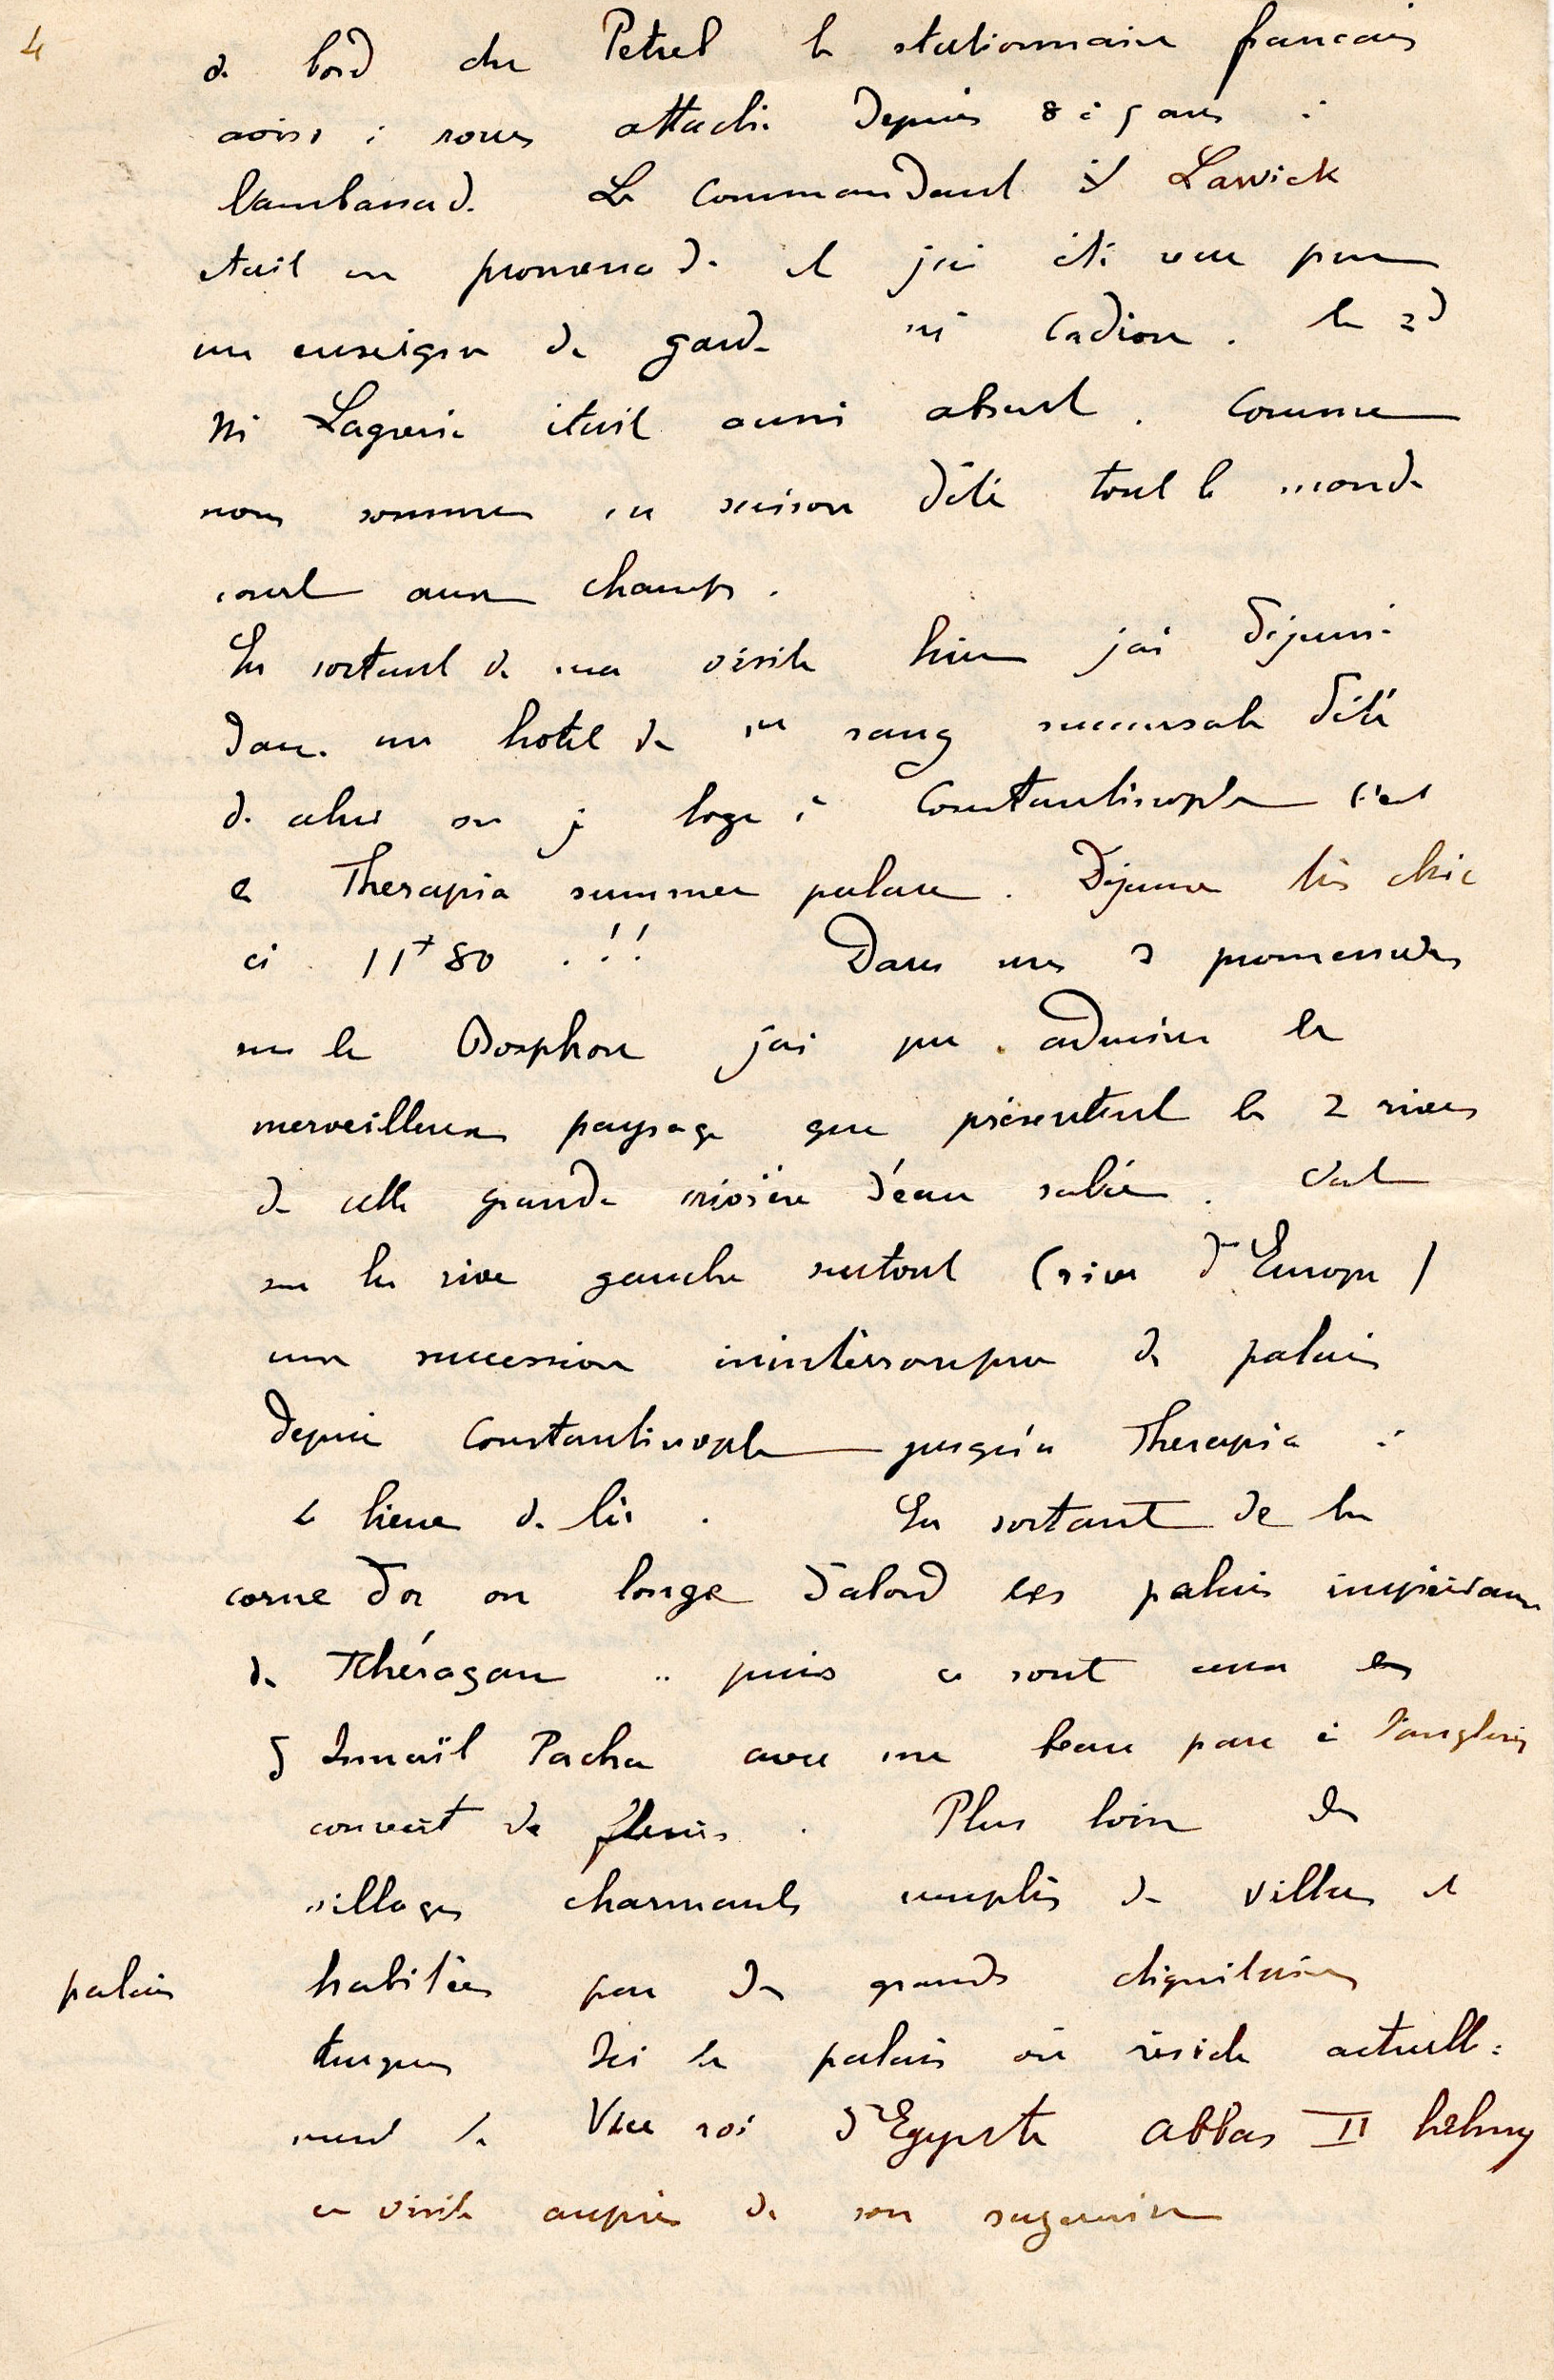 4
de bord du Petrel le stationnaire francais
aviso à roues attaché depuis 8 à 9 ans à
l'ambassade. Le Commandant
était en promenade et j'ai été reçu par
un enseigne de garde Mr Cadiou. le 2d
Mr était aussi absent. Comme
nous sommes en saison d'été tout le monde
court aux champs.
En sortant de ma visite hier j'ai déjeuné
dans un hotel de 1er rang succursale d'été
de celui ou je loge à Constantinople c'est
le Therapia summer palace. Déjeuner très chic
ci 11f 80 . ! !  Dans mes 2 promenades
sur le Bosphore j'ai pu admirer le
merveilleux paysage que présentent les 2 rives
de cette grande rivière d'eau salée. C'est
sur la rive gauche surtout (rive d'Europe)
une succession ininterrompue de palais
depuis Constantinople jusqu'à Therapia à
4 lieues de là. En sortant de la
corne d'or on longe d'abord les palais impériaux
de Tchéragan .. puis ce sont ceux
d'Ismaïl Pacha avec un beau parc à l'anglaise
couvert de fleurs. Plus loin des
villages charmants remplis de villas et
palais habités par des grands dignitaires
turques Ici le palais où réside actuelle=
ment le Vice roi d'Egypte Abbas II helmy
en visite auprès de son suzerain